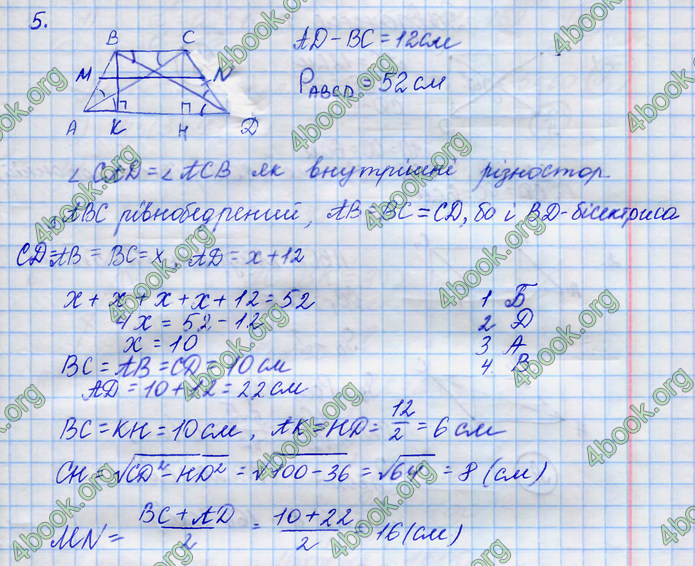 5.
B C
M N
A K H D
AD - BC = 12 см
P ABCD = 52 см
∠CAD = ∠ACB як внутрішні різностор.
ABC рівнобедрений, AB = BC = CD, бо і BD - бісектриса
CD = AB = BC = x, AD = x + 12
x + x + x + x + 12 = 52
4x = 52 - 12
x = 10
BC = AB = CD = 10 см
AD = 10 + 12 = 22 см
1 Б
2 Д
3 А
4. В
BC = KH = 10 см, AK = HD = 12/2 = 6 см
CH = √CD² - HD² = √100 - 36 = √64 = 8 (см)
MN = BC + AD/2 = 10 + 22/2 = 16 (см)
4book.org